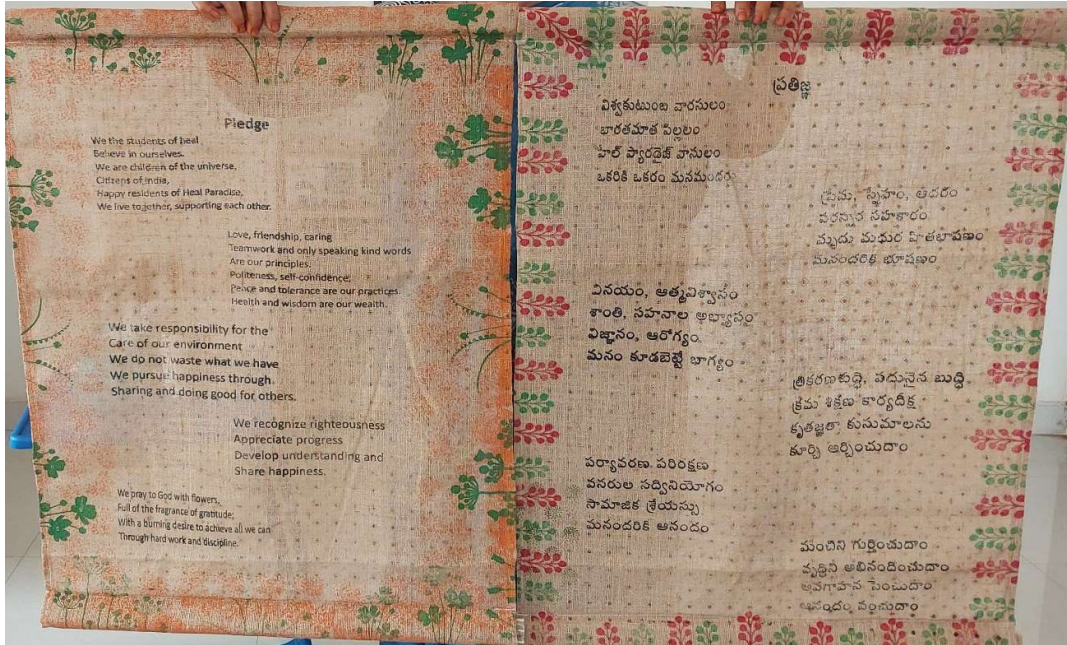 Pledge
We the students of heal
Believe in ourselves.
We are children of the universe,
Citizens of India,
Happy residents of Heal Paradise,
We live together, supporting each other.
Love, friendship, caring
Teamwork and only speaking kind words
Are our principles.
Politeness, self-confidence,
Peace and tolerance are our practices.
Health and wisdom are our wealth.
We take responsibility for the
Care of our environment
We do not waste what we have
We pursue happiness through
Sharing and doing good for others.
We recognize righteousness
Appreciate progress
Develop understanding and
Share happiness.
We pray to God with flowers,
Full of the fragrance of gratitude;
With a burning desire to achieve all we can
Through hard work and discipline.
ప్రతిజ్ఞ
విశ్వకుటుంబ వారసులం
భారతమాత పిల్లలం
హీల్ ప్యారడైజ్ వాసులం
ఒకరికి ఒకరం మనమందరం
ప్రేమ, స్నేహం, ఆదరం
పరస్పర సహకారం
మృదు మధుర హితభాషణం
మనందరికి భూషణం
వినయం, ఆత్మవిశ్వాసం
శాంతి, సహనాల అభ్యాసం
విజ్ఞానం, ఆరోగ్యం
మనం కూడబెట్టే భాగ్యం
త్రికరణశుద్ధి, పదునైన బుద్ధి
క్రమ శిక్షణ కార్యదీక్ష
కృతజ్ఞతా కుసుమాలను
కూర్చి అర్పించుదాం
పర్యావరణ పరిరక్షణ
వనరుల సద్వినియోగం
సామాజిక శ్రేయస్సు
మనందరికి ఆనందం
మంచిని గుర్తించుదాం
వృద్ధిని అభినందించుదాం
అవగాహన పెంచుదాం
ఆనందం పంచుదాం